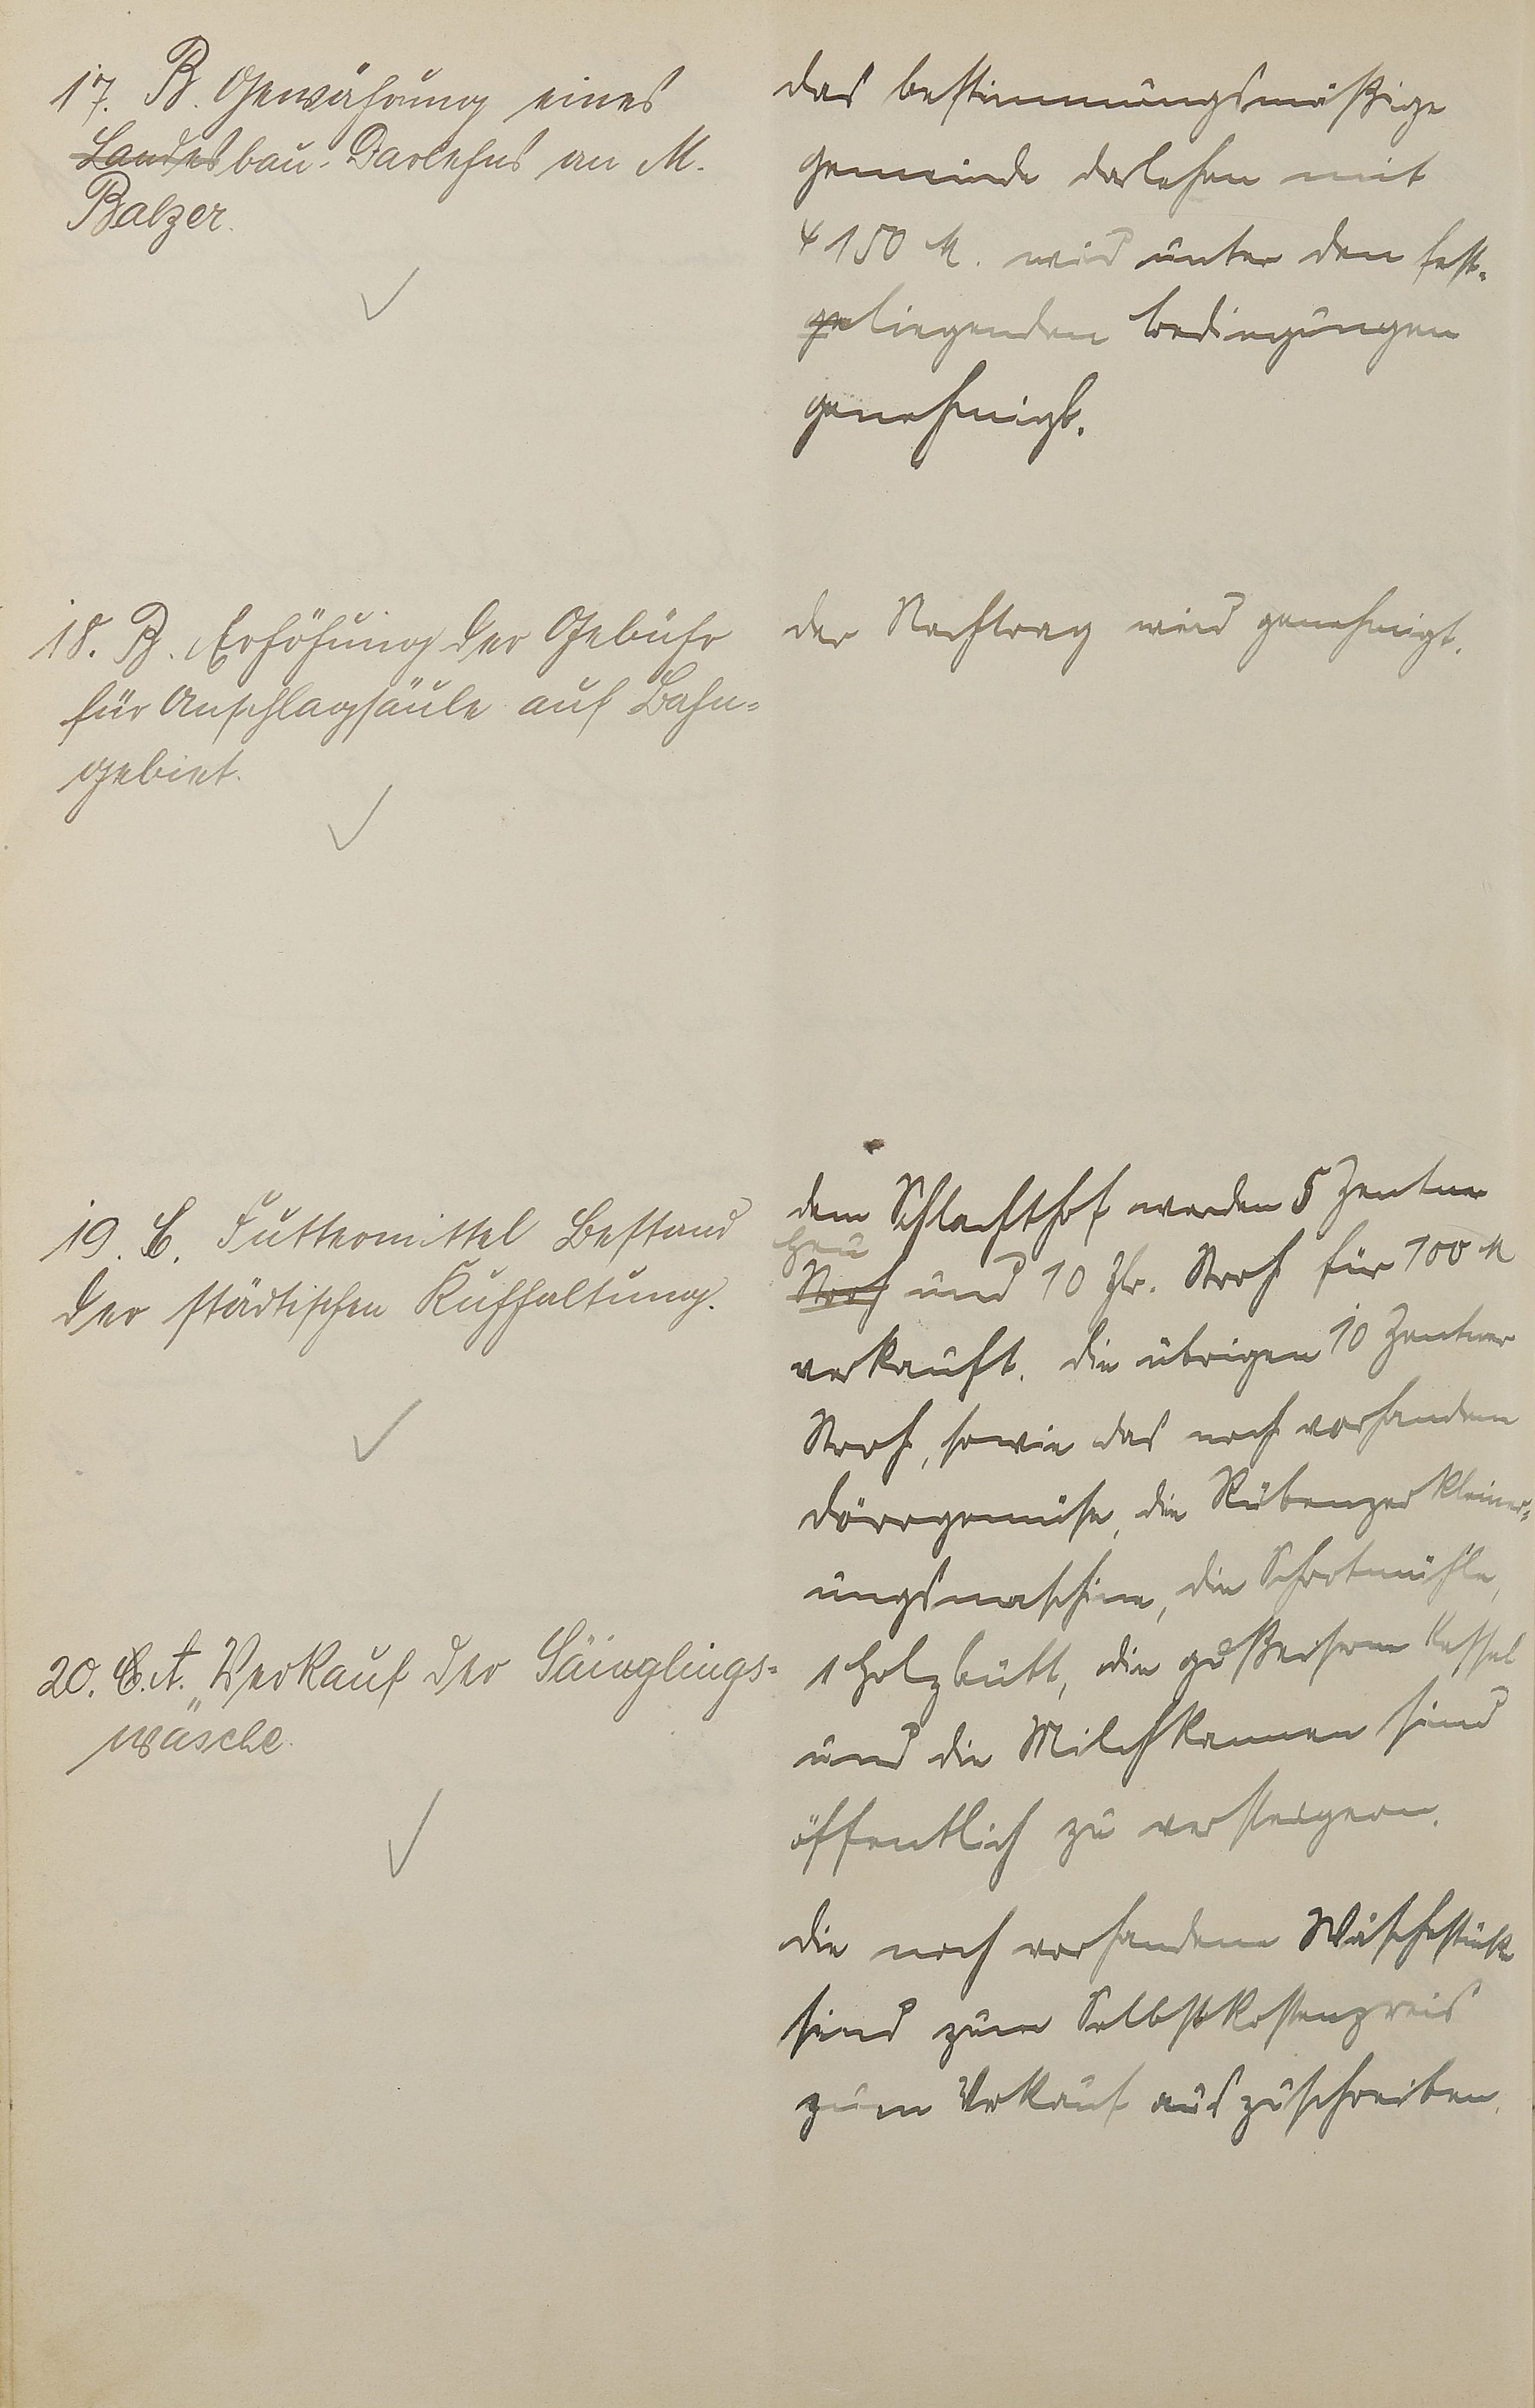 17. B. Gewährung eines
Landesbau-Darlehns an M.
Balzer.
das bestimmungsmäßige
Gemeinde darlehen mit
4150 M. wird unter den fest-
geliegenden Bedingungen
genehmigt.
18. B. Erhöhung der Gebühr
für Anschlagsäule auf Bahn-
gebiet.
der Nachtrag wird genehmigt.
19. C. Futtermittel Bestand
der städtischen Kuhhaltung.
dem Schlachthof werden 5 Zentner
Heu
Stroh und 10 Ztr. Stroh für 100 M
verkauft. die übrigen 10 Zentner
Stroh, sowie das noch vorhandene
Dörrgemüse, die Rübenzerkleiner-
ungsmaschine, die Schrotmühle,
1 Holzbütt, die gußeisernen Kessel
und die Milchkannen sind
öffentlich zu versteigern.
20. C. A. Verkauf der Säuglings-
wäsche.
die noch vorhandenen Wäschestücke
sind zum Selbstkostenpreis
zum Verkauf auszuschreiben.